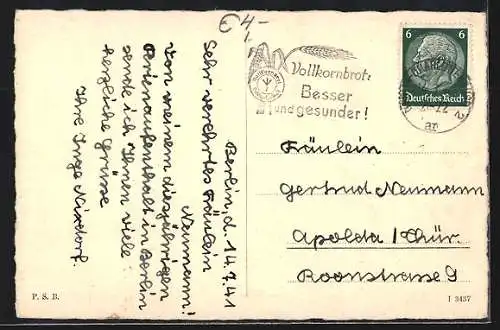 €4,-
Berlin, d. 14.7.41
Sehr verehrtes Fräulein
Neumann!
Von meinem diesjährigen
Ferienaufenthalt in Berlin
sende ich Ihnen viele
herzliche Grüsse
Ihre Inge Nixdorf.
P. S. B.
Vollkornbrot:
Besser
und gesunder!
6 6
Deutsches Reich
Fräulein
Gertrud Neumann
Apolda / Thür.
Roonstrasse 9
I 3437